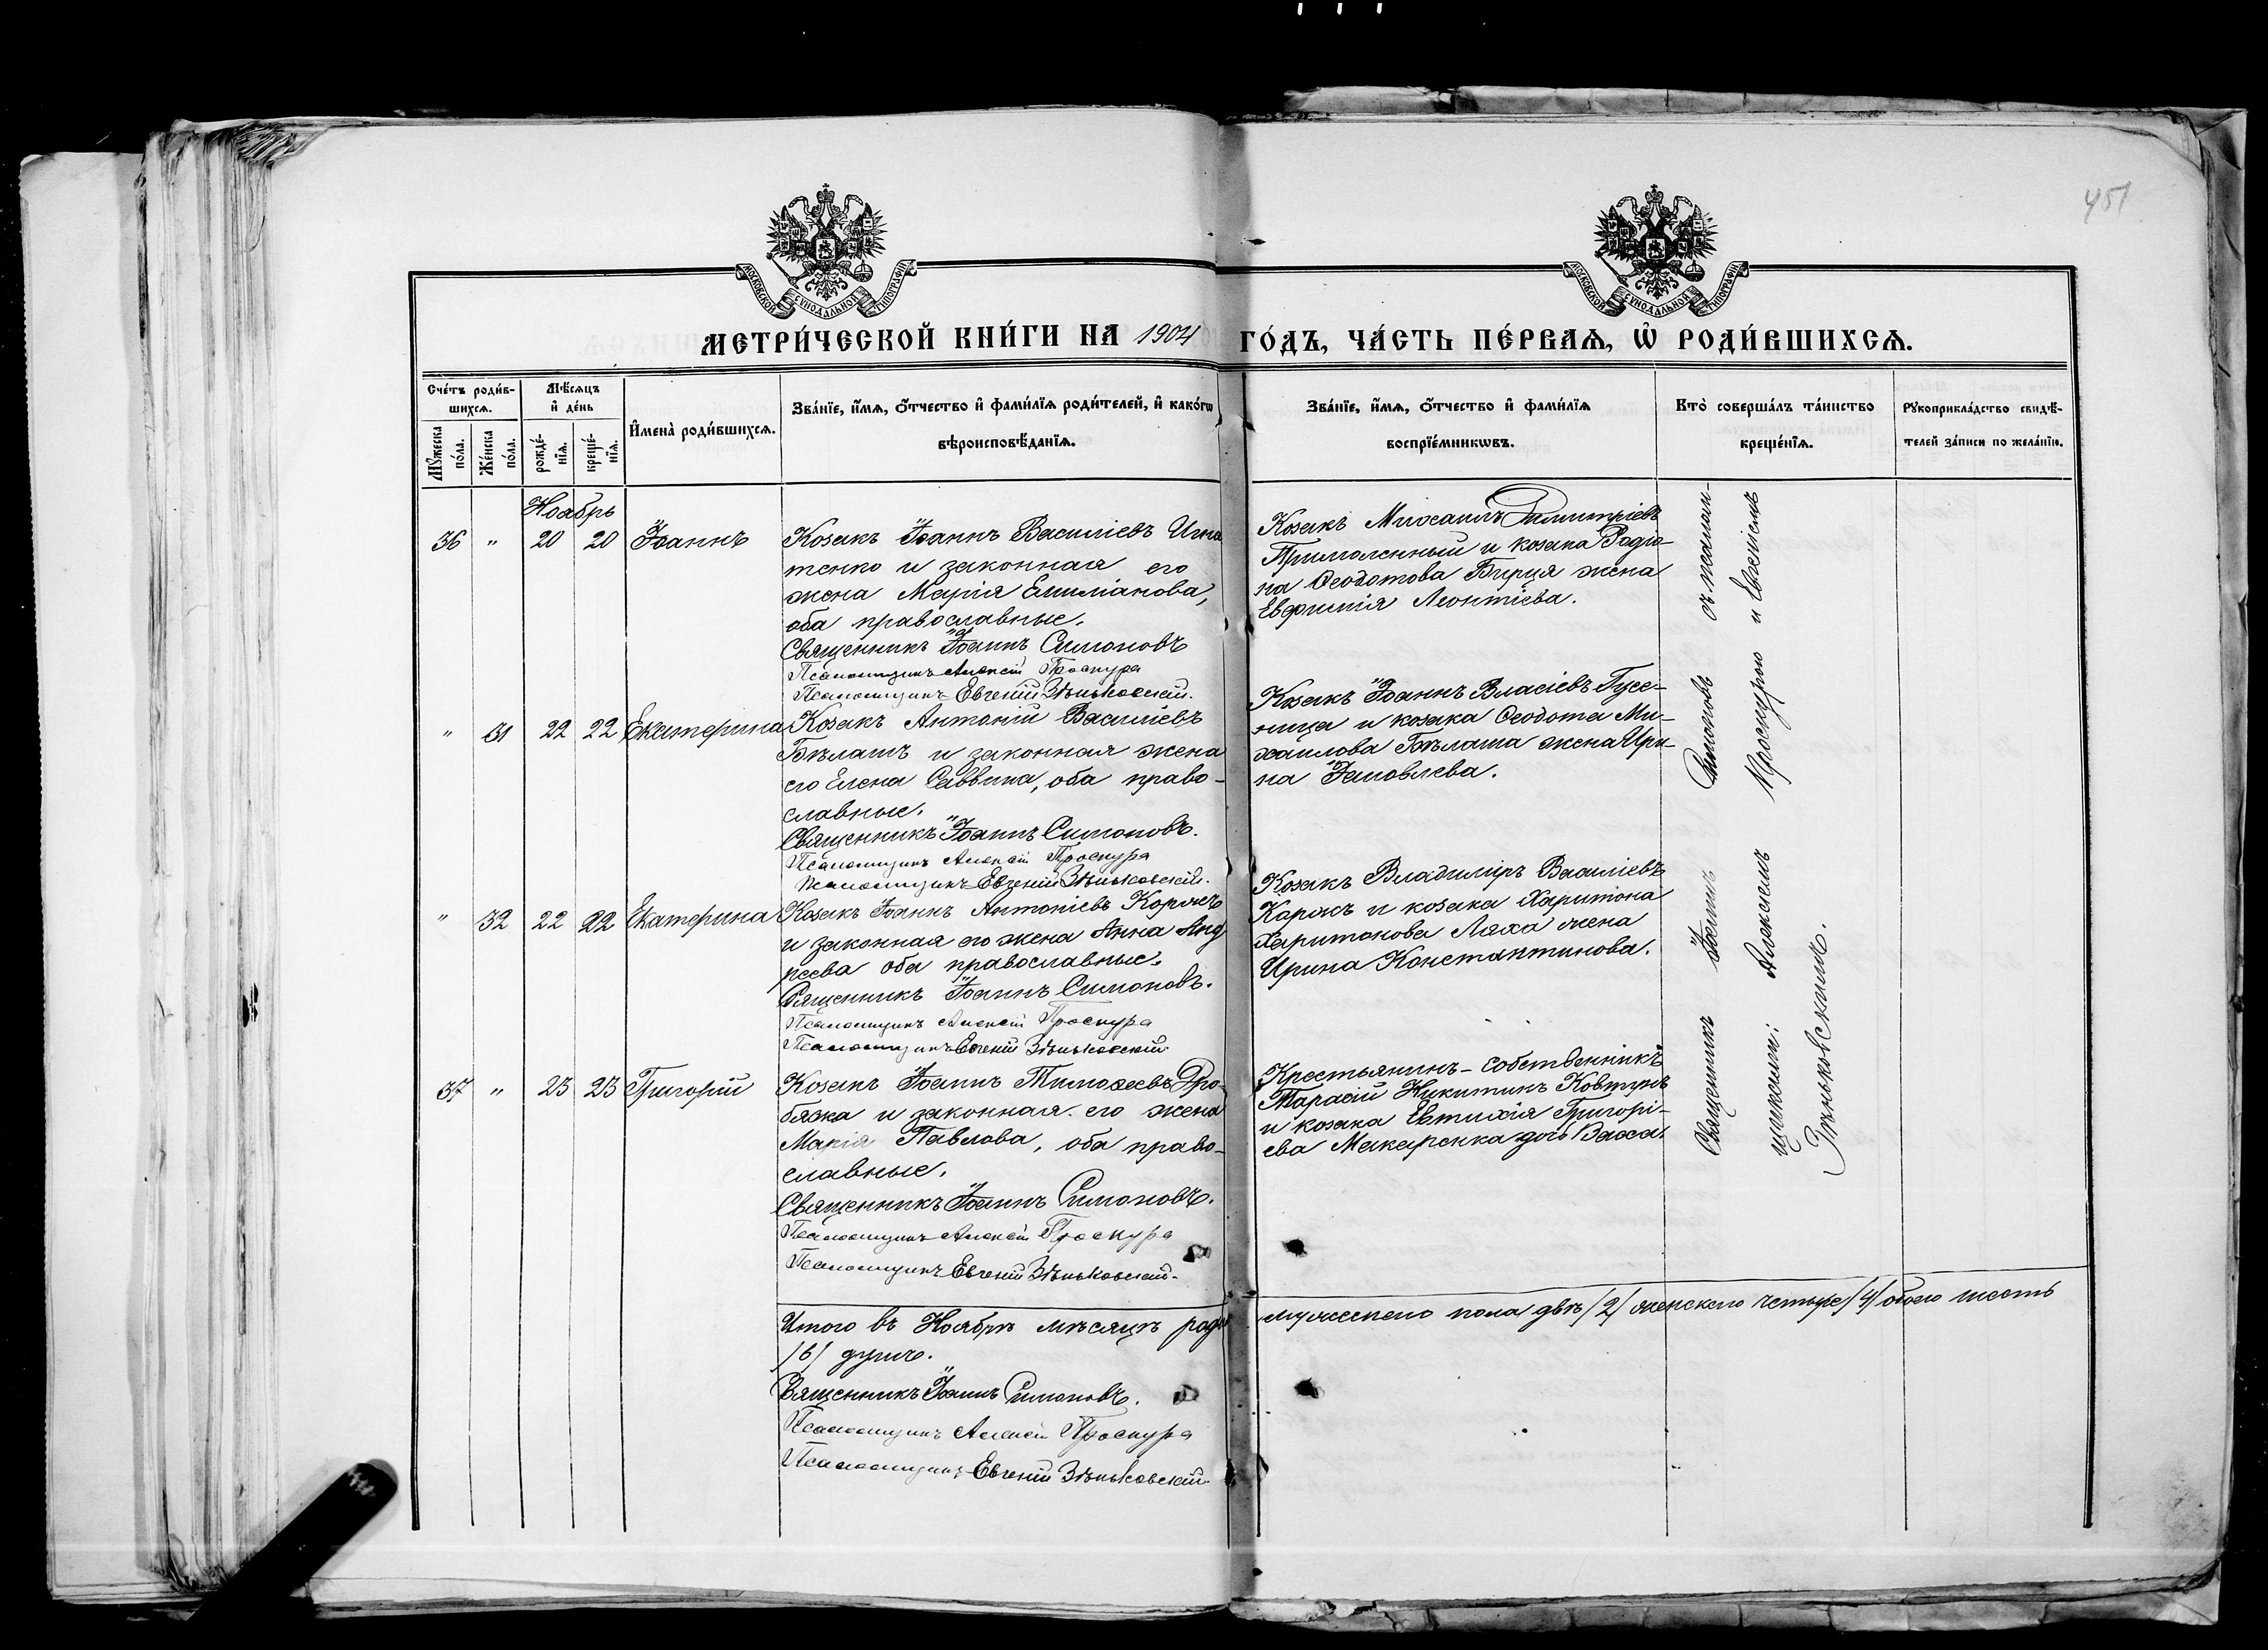 451
МОСКОВСКОЙ СУНОДАЛЬНОЙ ТИПОГРАФІИ
МОСКОВСКОЙ СУНОДАЛЬНОЙ ТИПОГРАФІИ
МЕТРИ́ЧЕСКОЙ КНИ́ГИ НА 1904 ГО́ДЪ, ЧА́СТЬ ПЕ́РВАѦ, Ѡ РОДИ́ВШИХСѦ.
Сче́тъ роди́в-
шихсѧ.
Мꙋ́жеска по́ла.
Же́нска по́ла.
Мѣ́сѧцъ
и҆ де́нь
рожде́-
нїѧ.
креще́-
нїѧ.
И҆мена̀ роди́вшихсѧ.
Зва́нїе, и҆́мѧ, ѻ҆́тчество и҆ фами́лїѧ роди́телей, и҆ како́гѡ
вѣроисповѣ́данїѧ.
Зва́нїе, и҆́мѧ, ѻ҆́тчество и҆ фами́лїѧ
воспрїе́мникѡвъ.
Кто̀ соверша́лъ та́инство
креще́нїѧ.
Рꙋкоприкла́дство свидѣ́-
телей за́писи по жела́нїю.
Ноябрь
36 " 20 20 Іоаннъ
Козакъ Іоаннъ Василіевъ Игна
тенко и законная его
жена Марія Емиліанова,
оба православные.
Священникъ Іоаннъ Симоновъ
Псаломщикъ Алексій Проскура
Псаломщикъ Евгеній Зѣньковскій.
Козакъ Михаилъ Димитріевъ
Примоленный и козака Родіо-
на Ѳеодотова Бирця жена
Евфимія Леонтіева.
" 31 22 22 Екатерина
Козакъ Антоній Василіевъ
Бѣлашъ и законная жена
его Елена Саввина, оба право-
славные.
Священникъ Іоаннъ Симоновъ.
Псаломщикъ Алексій Проскура
Псаломщикъ Евгеній Зѣньковскій.
Козакъ Іоаннъ Власіевъ Гусе-
ница и козака Ѳеодота Ми-
хаилова Бѣлаша жена Ири-
на Іаковлева.
" 32 22 22 Екатерина
Козакъ Іоаннъ Антоніевъ Коржъ
и законная его жена Анна Анд
реева оба православные.
Священникъ Іоаннъ Симоновъ.
Псаломщикъ Алексій Проскура
Псаломщикъ Евгеній Зѣньковскій
Козакъ Владиміръ Василіевъ
Коржъ и козака Харитона
Харитонова Ляха жена
Ирина Константинова.
37 " 23 23 Григорій
Козакъ Іоаннъ Тимоѳеевъ Дро-
бязка и законная его жена
Марія Павлова, оба право-
славные.
Священникъ Іоаннъ Симоновъ.
Псаломщикъ Алексій Проскура
Псаломщикъ Евгеній Зѣньковскій.
Крестьянинъ-собственникъ
Тарасій Никитинъ Ковтунъ
и козака Евтихія Григорі-
ева Макаренка дочь Васса.
Священникъ Іоаннъ Симоновъ съ псалом-
щиками: Алексіемъ Проскурою и Евгеніемъ
Зѣньковскимъ.
Итого въ Ноябрѣ мѣсяцѣ роди мужескаго пола двѣ /2/ женскаго четыре /4/ обоего шесть
/6/ душъ.
Священникъ Іоаннъ Симоновъ.
Псаломщикъ Алексій Проскура
Псаломщикъ Евгеній Зѣньковскій